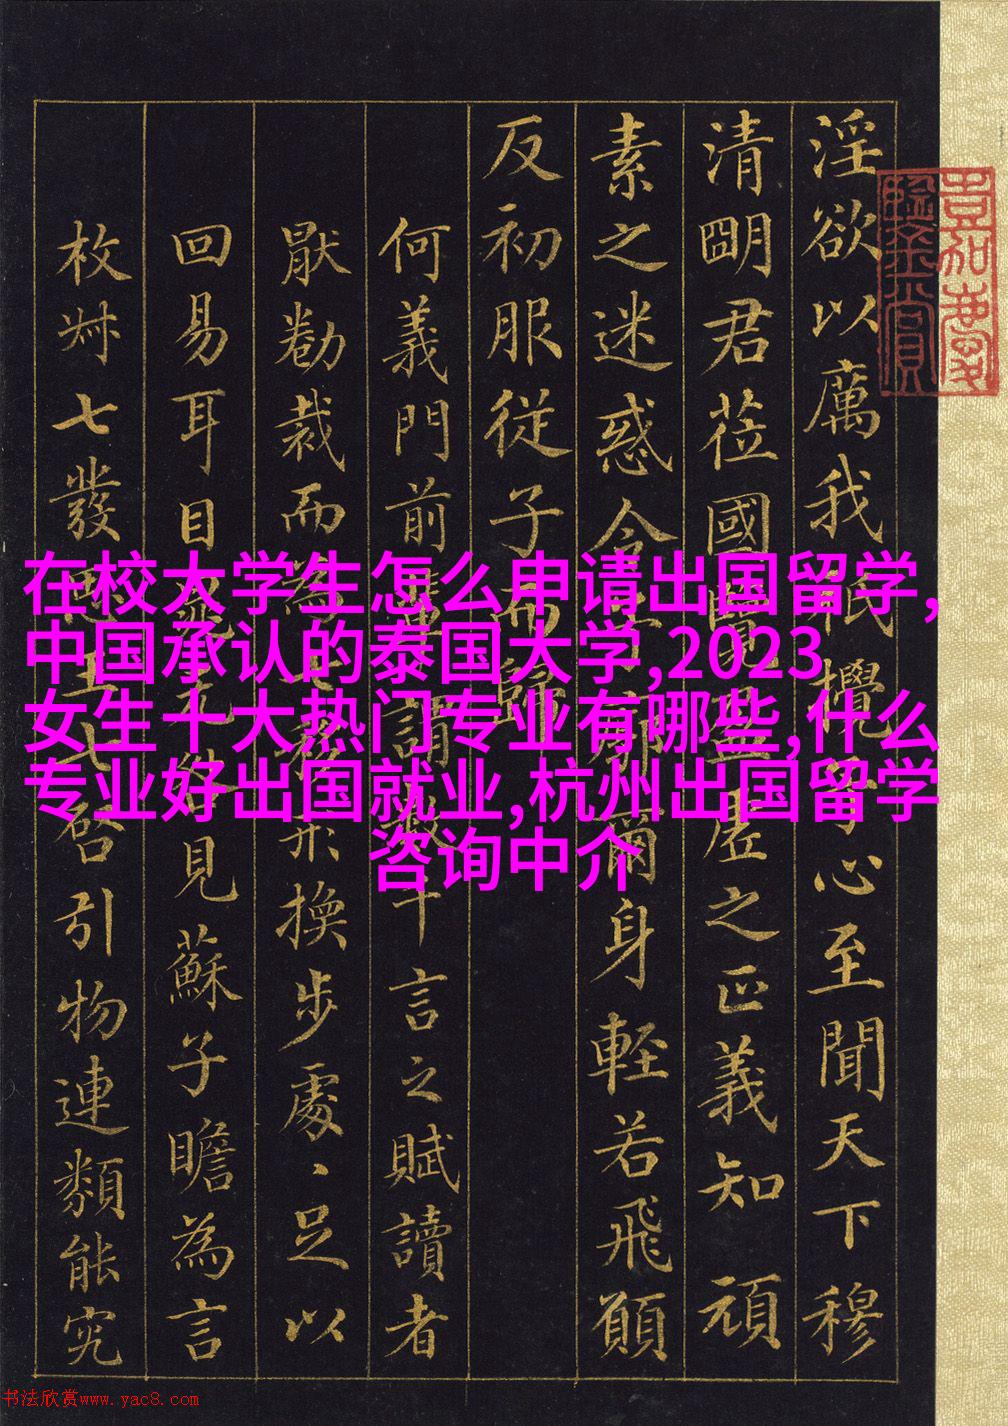 淫欲以厲我民攪心至聞天下穆
清朙君莅國虛之正義知頑
素之迷惑令爾身輕若飛願
反初服從子而歸
何義門前謂千言之賦讀者
厭勌裁而形換步處、足以
回易耳目見蘇子瞻為言
枚叔七發啓引物連類能究
嘉慶鑑賞
在校大学生怎么申请出国留学,
中国承认的泰国大学,2023
女生十大热门专业有哪些,什么
专业好出国就业,杭州出国留学
咨询中介
书法欣赏www.yac8.com